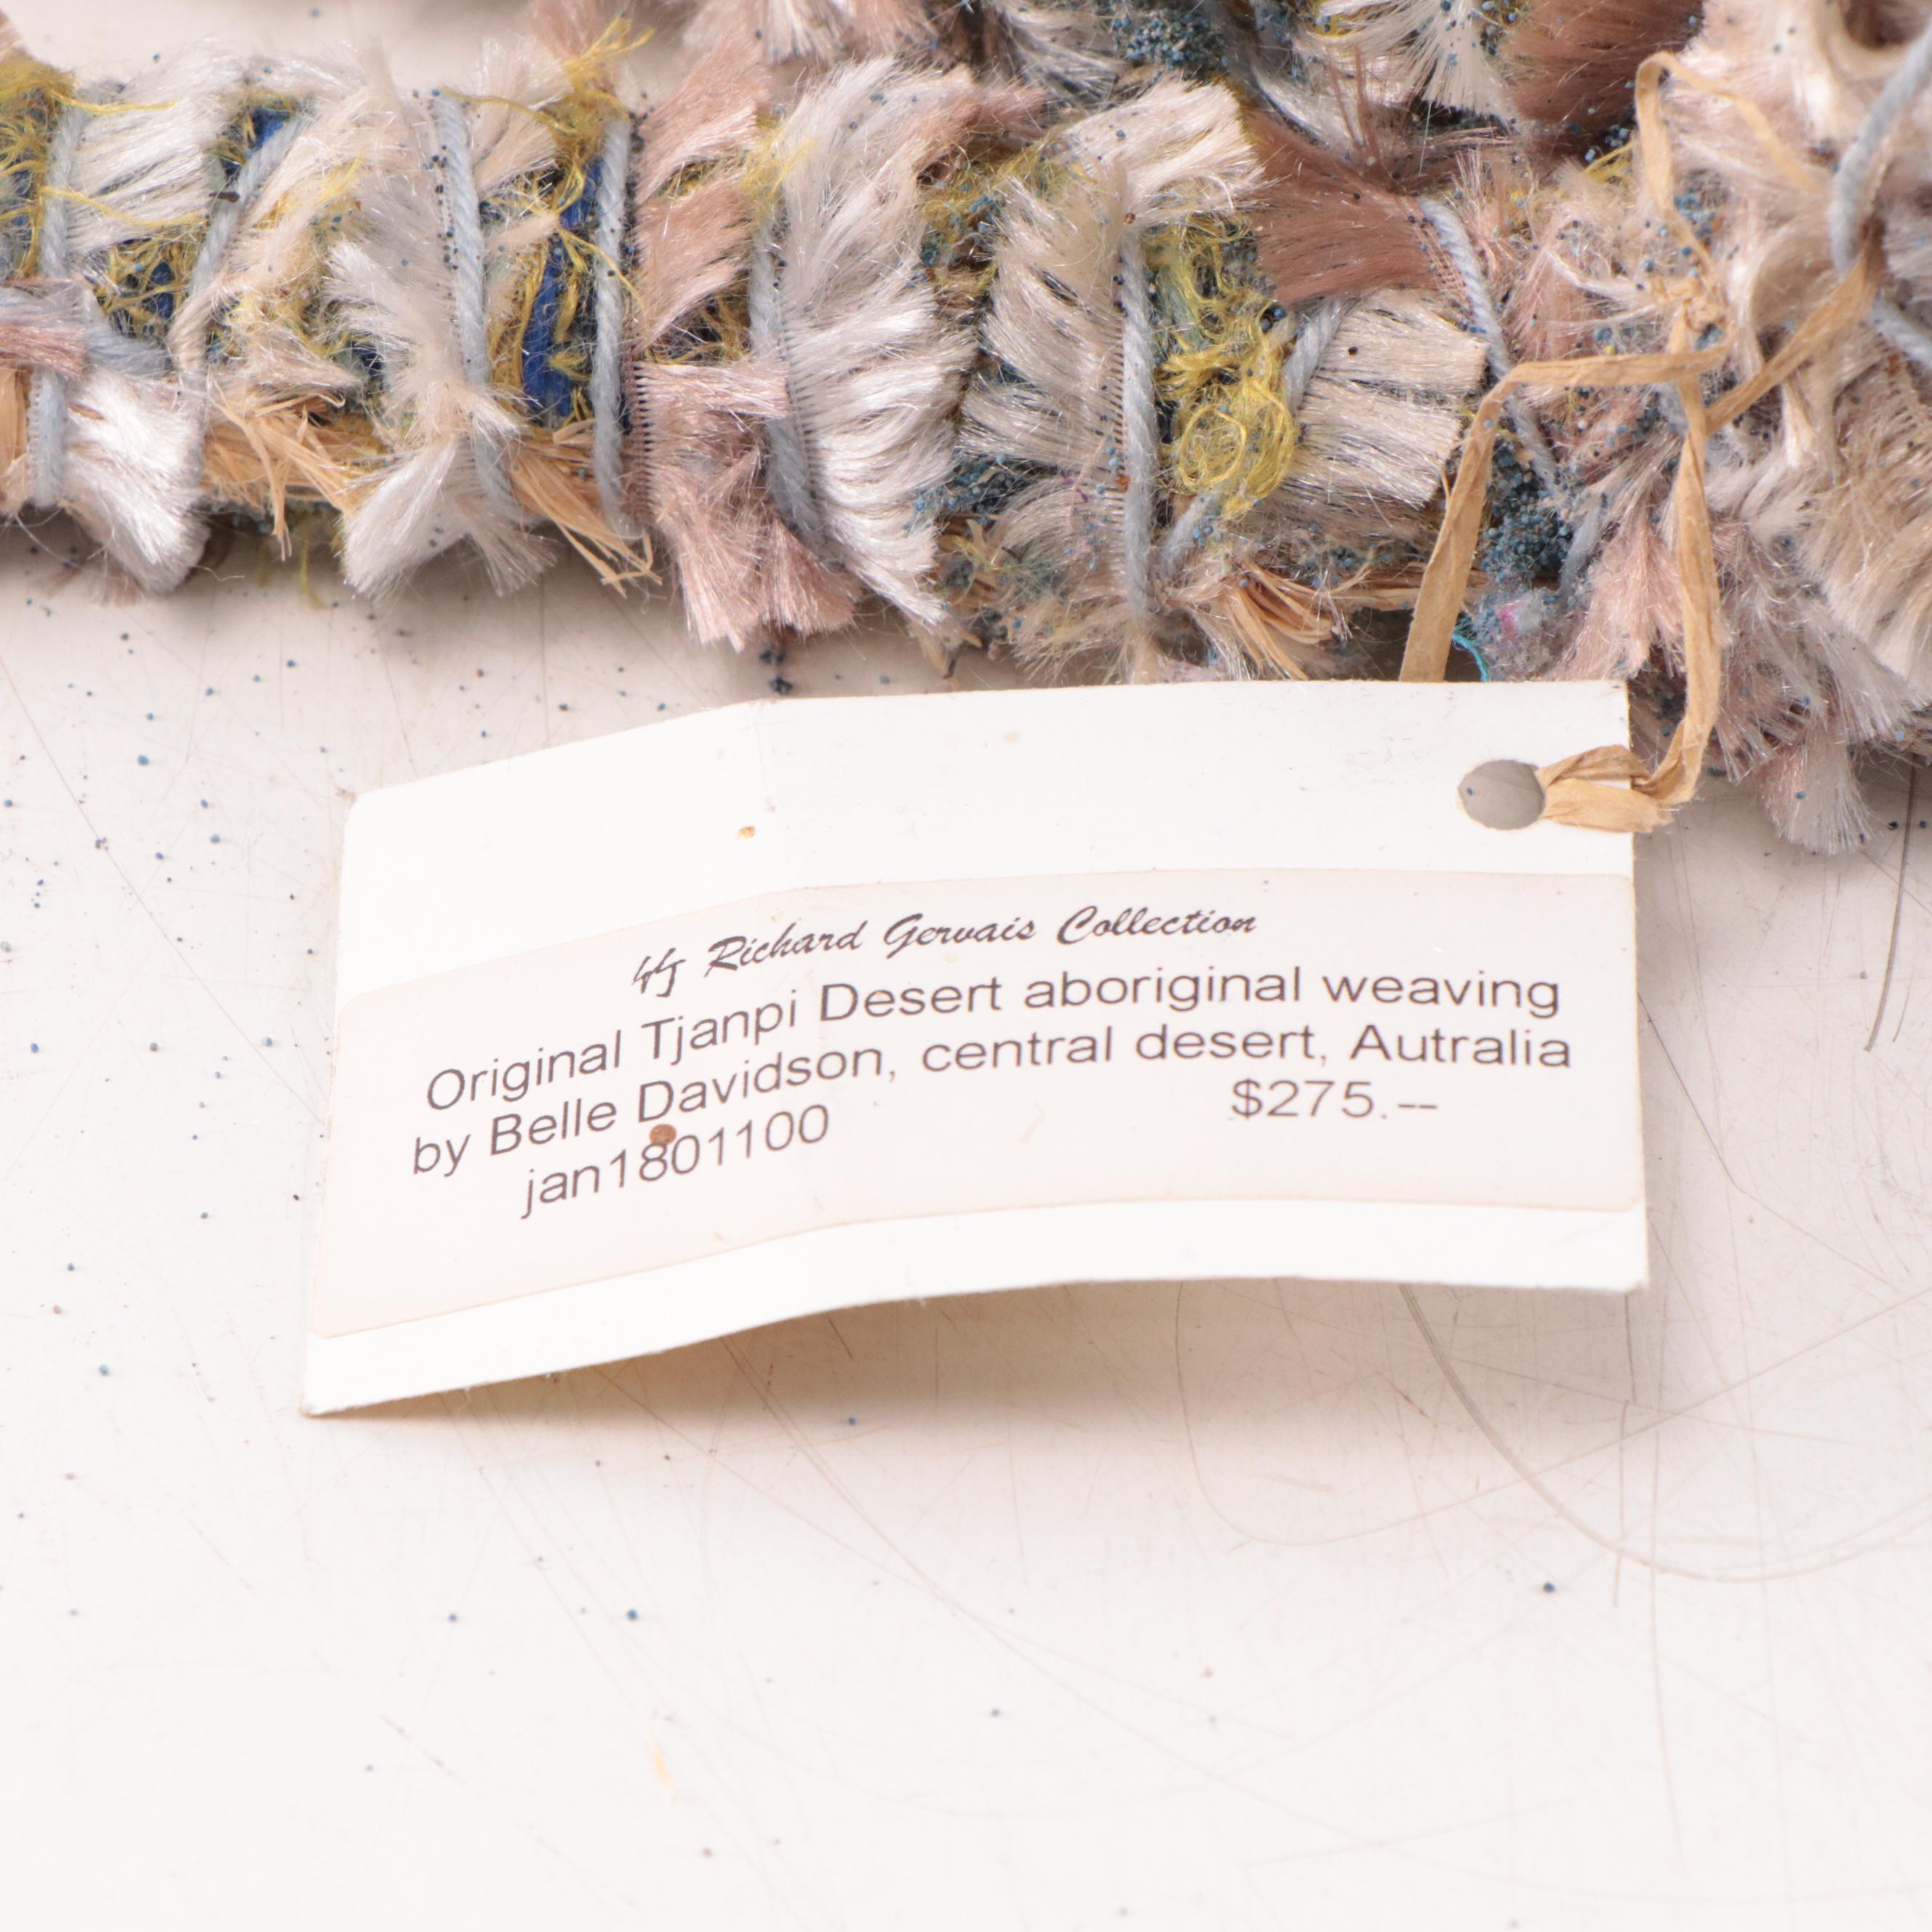 Richard Gervais Collection
Original Tjanpi Desert aboriginal weaving
by Belle Davidson, central desert, Autralia
jan1801100 $275.--